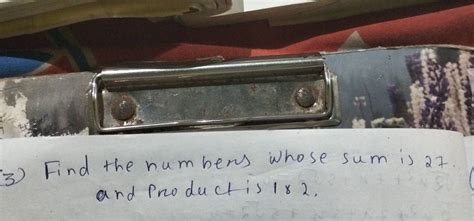 3) Find the numbers whose sum is 27.
and Product is 182.